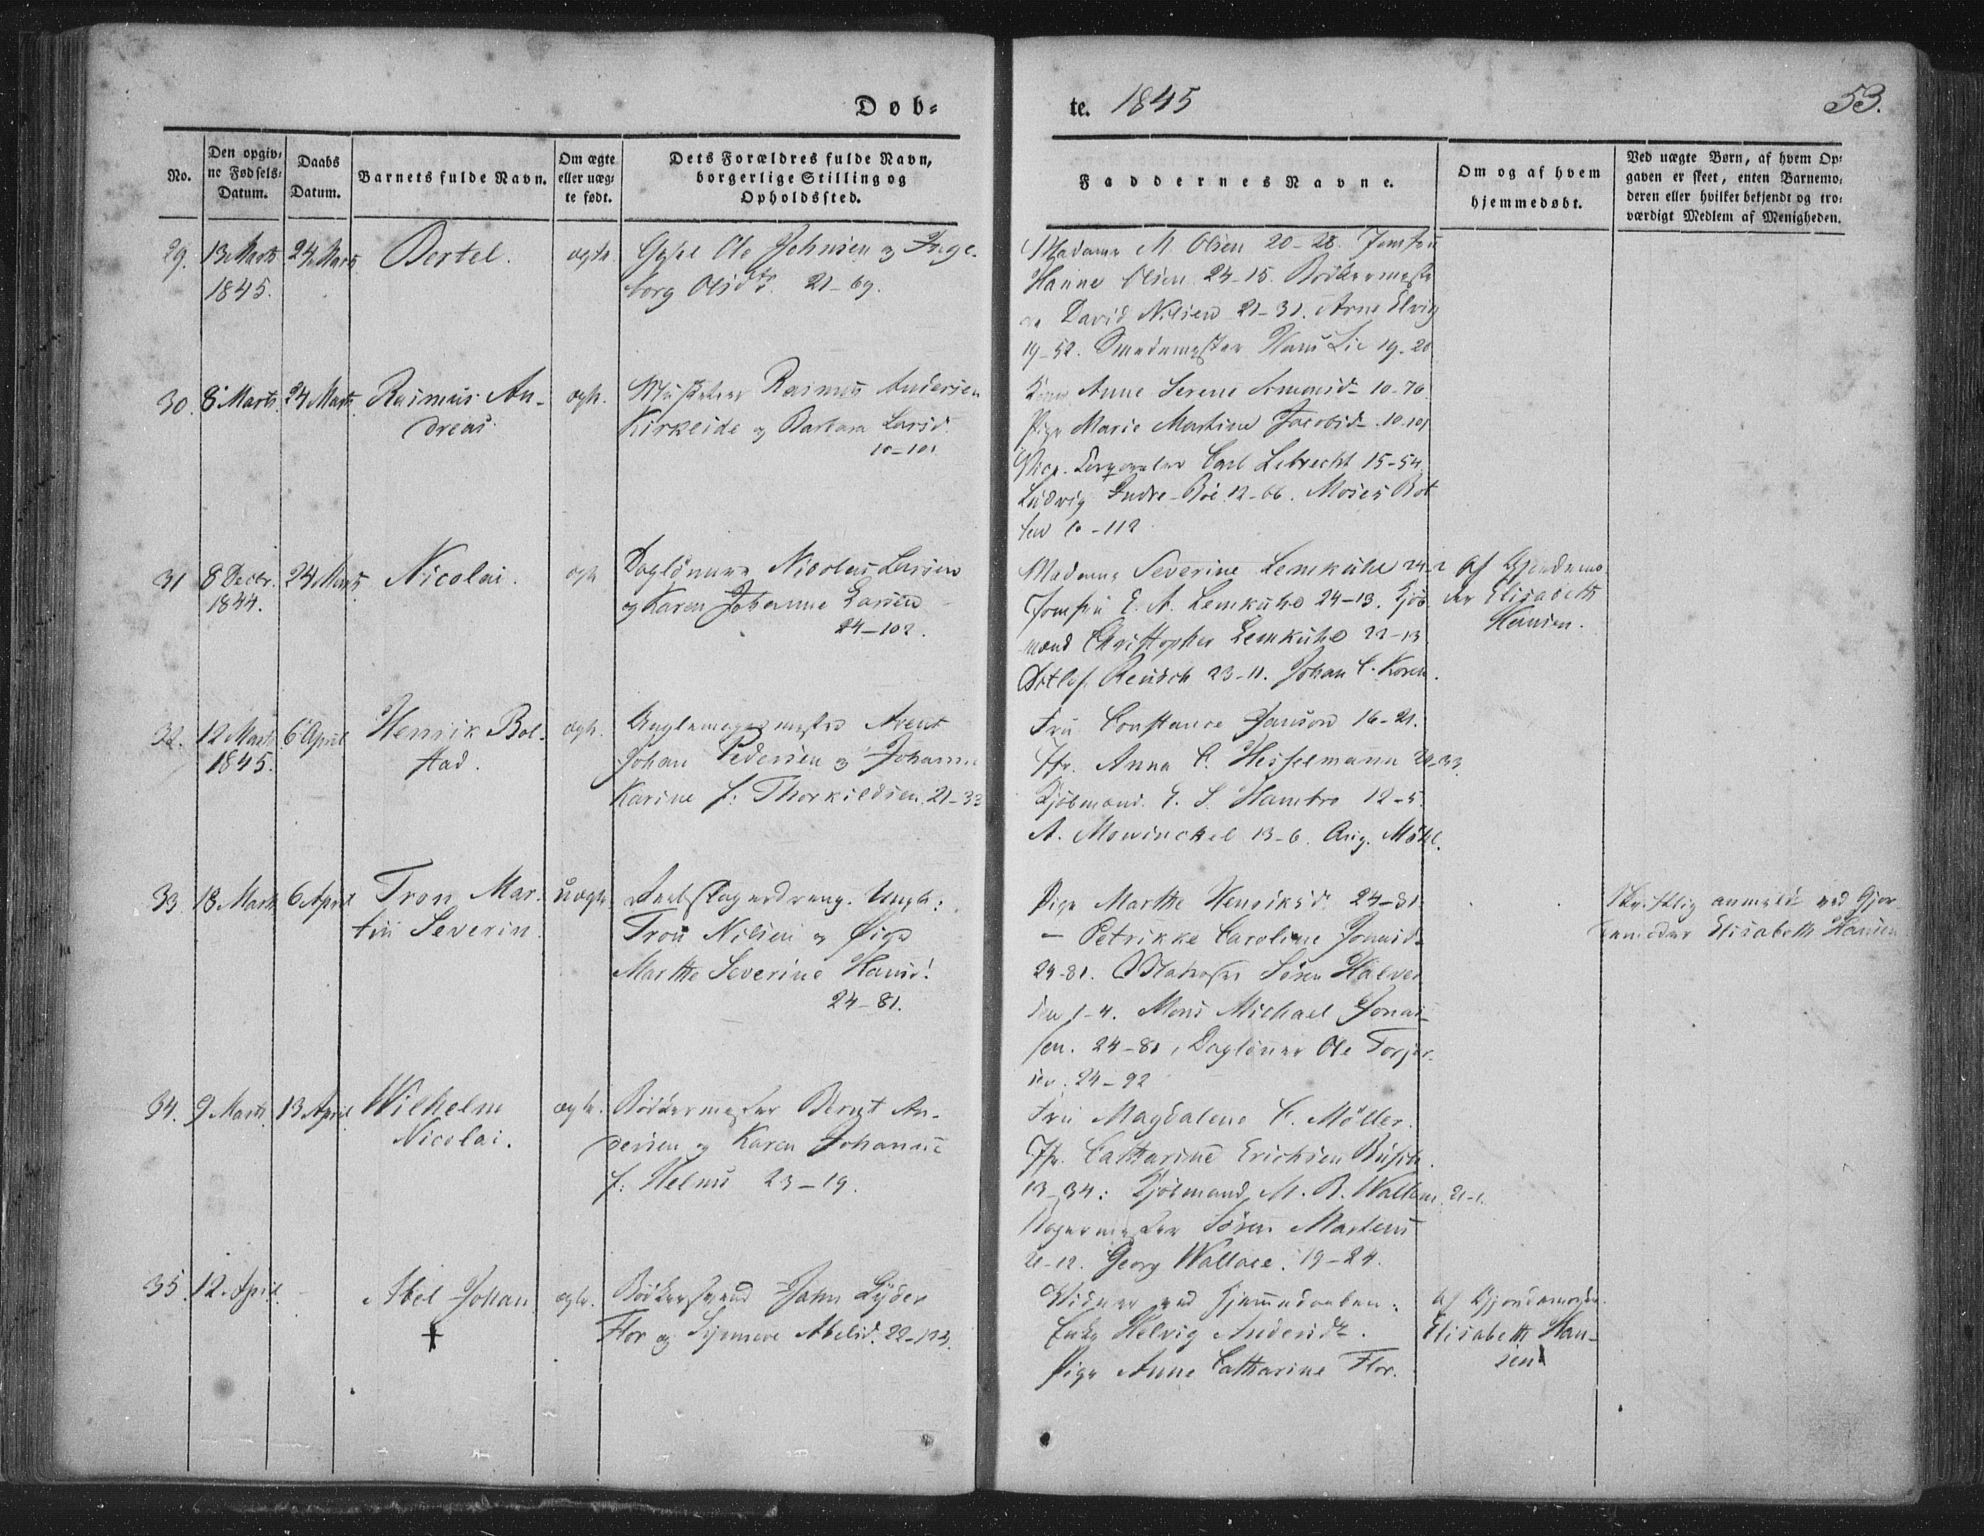 Döb-
te. 1845
53.
No.
Den opgiv-
ne Fødsels-
Datum.
Daabs
Datum.
Barnets fulde Navn.
Om ægte
eller uæg-
te født.
Dets Forældres fulde Navn,
borgerlige Stilling og
Opholdssted.
Faddernes Navne.
Om og af hvem
hjemmedøbt.
Ved uægte Børn, af hvem Op-
gaven er skeet, enten Barnemo-
deren eller hvilket bekjendt og tro-
værdigt Medlem af Menigheden.
29. 13 Marts 24 Marts Bertel. ægte Ole Johnsen og Inge-
1845. borg Olsdr. 21-69.
Madame M. Olsen 20-28. Jomfru
Hanne Olsen 24-15. Bödkermester
David Nilsen 21-31. Arne Elvig
19-52. Smedemester Hans Lie 19-20
30. 8 Marts 24 Marts Rasmus An- ægte. Rasmus Andersen
dreas Kirkeide og Barbara Larsd.
10-101
Anne Serene Simonsd. 10-70
Pige Marie Martine Jacobsd. 10-101
Vice-Corporaler Carl Lebrecht 15-54
Ludvig Indre-Böe 12-66. Moses Bot
ten 10-112
31 8 Decbr. 24 Marts Nicolai. ægte Daglönner Nicolas Larsen
1844. og Karen Johanne Larsen
24-102.
Madame Severine Lemkuhl 24-2
Jomfru E. A. Lemkuhl 24-13. Kjöb-
mænd Christopher Lemkuhl 22-13
Detlef Reusch 23-11. Johan C. Koren.
Af Gjordemo-
der Elisabeth
Hansen.
32. 12 Marts 6 April Henrik Bol- ægte. Arent
1845. stad. Johan Pedersen og Johanne
Karine f: Thorkildsen. 21-33
Fru Constance Janson 16-21.
Jfr. Anna C. Hesselmann 20-33.
Kjöbmænd. E. S. Hambro 12-5
A. Mowinckel 13-6. Aug. Möhl.
33 18 Marts 6 April Tron Mar- uægte Ungk:
tin Severin Tron Nilsen og Pige
Marthe Severine Hansd:
24-81.
Pige Marthe Henriksd. 24-81
— Petrikke Caroline Jonasd.
24-81. Matros Sören Halvor
sen 1-4. Mons Michael Jonas-
sen. 24-81, Daglönner Ole Torger-
sen. 24-92
Skriftlig anmeldt ved Gjor-
demoder Elisabeth Hansen
34. 9 Marts. 13 April Wilhelm ægte. Bödkermester Bernt An-
Nicolai. dersen og Karen Johanne
f: Helms 23-19.
Fru Magdalene C. Möller.
Jfr. Catharine Erichsen Busch.
13-34: Kjöbmænd M. B. Wallem 21-1.
Bagermester Sören Martens
21-12. Georg Wallace. 19-24.
35. 12 April. Abel Johan ægte. Bödkersvend John Lyder
Flor og Synneve Abelsd. 22-123.
Vidner ved Hjemmedaaben:
Enke Helvig Andersdr.
Pige Anne Catharine Flor.
Af Gjordemoder
Elisabeth Han-
sen